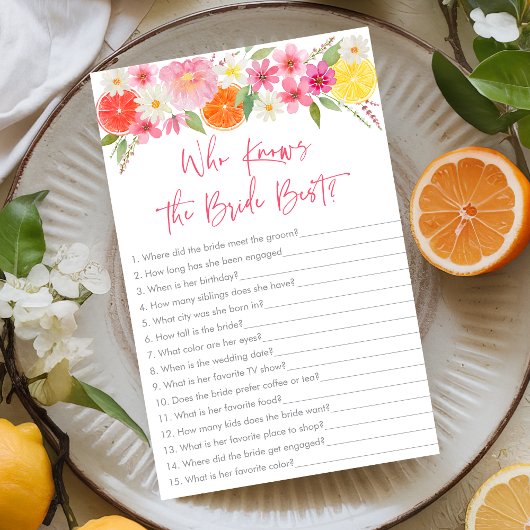 Who Knows
the Bride Best?
1. Where did the bride meet the groom?
2. How long has she been engaged
3. When is her birthday?
4. How many siblings does she have?
5. What city was she born in?
6. How tall is the bride?
7. What color are her eyes?
8. When is the wedding date?
9. What is her favorite TV show?
10. Does the bride prefer coffee or tea?
11. What is her favorite food?
12. How many kids does the bride want?
13. What is her favorite place to shop?
14. Where did the bride get engaged?
15. What is her favorite color?